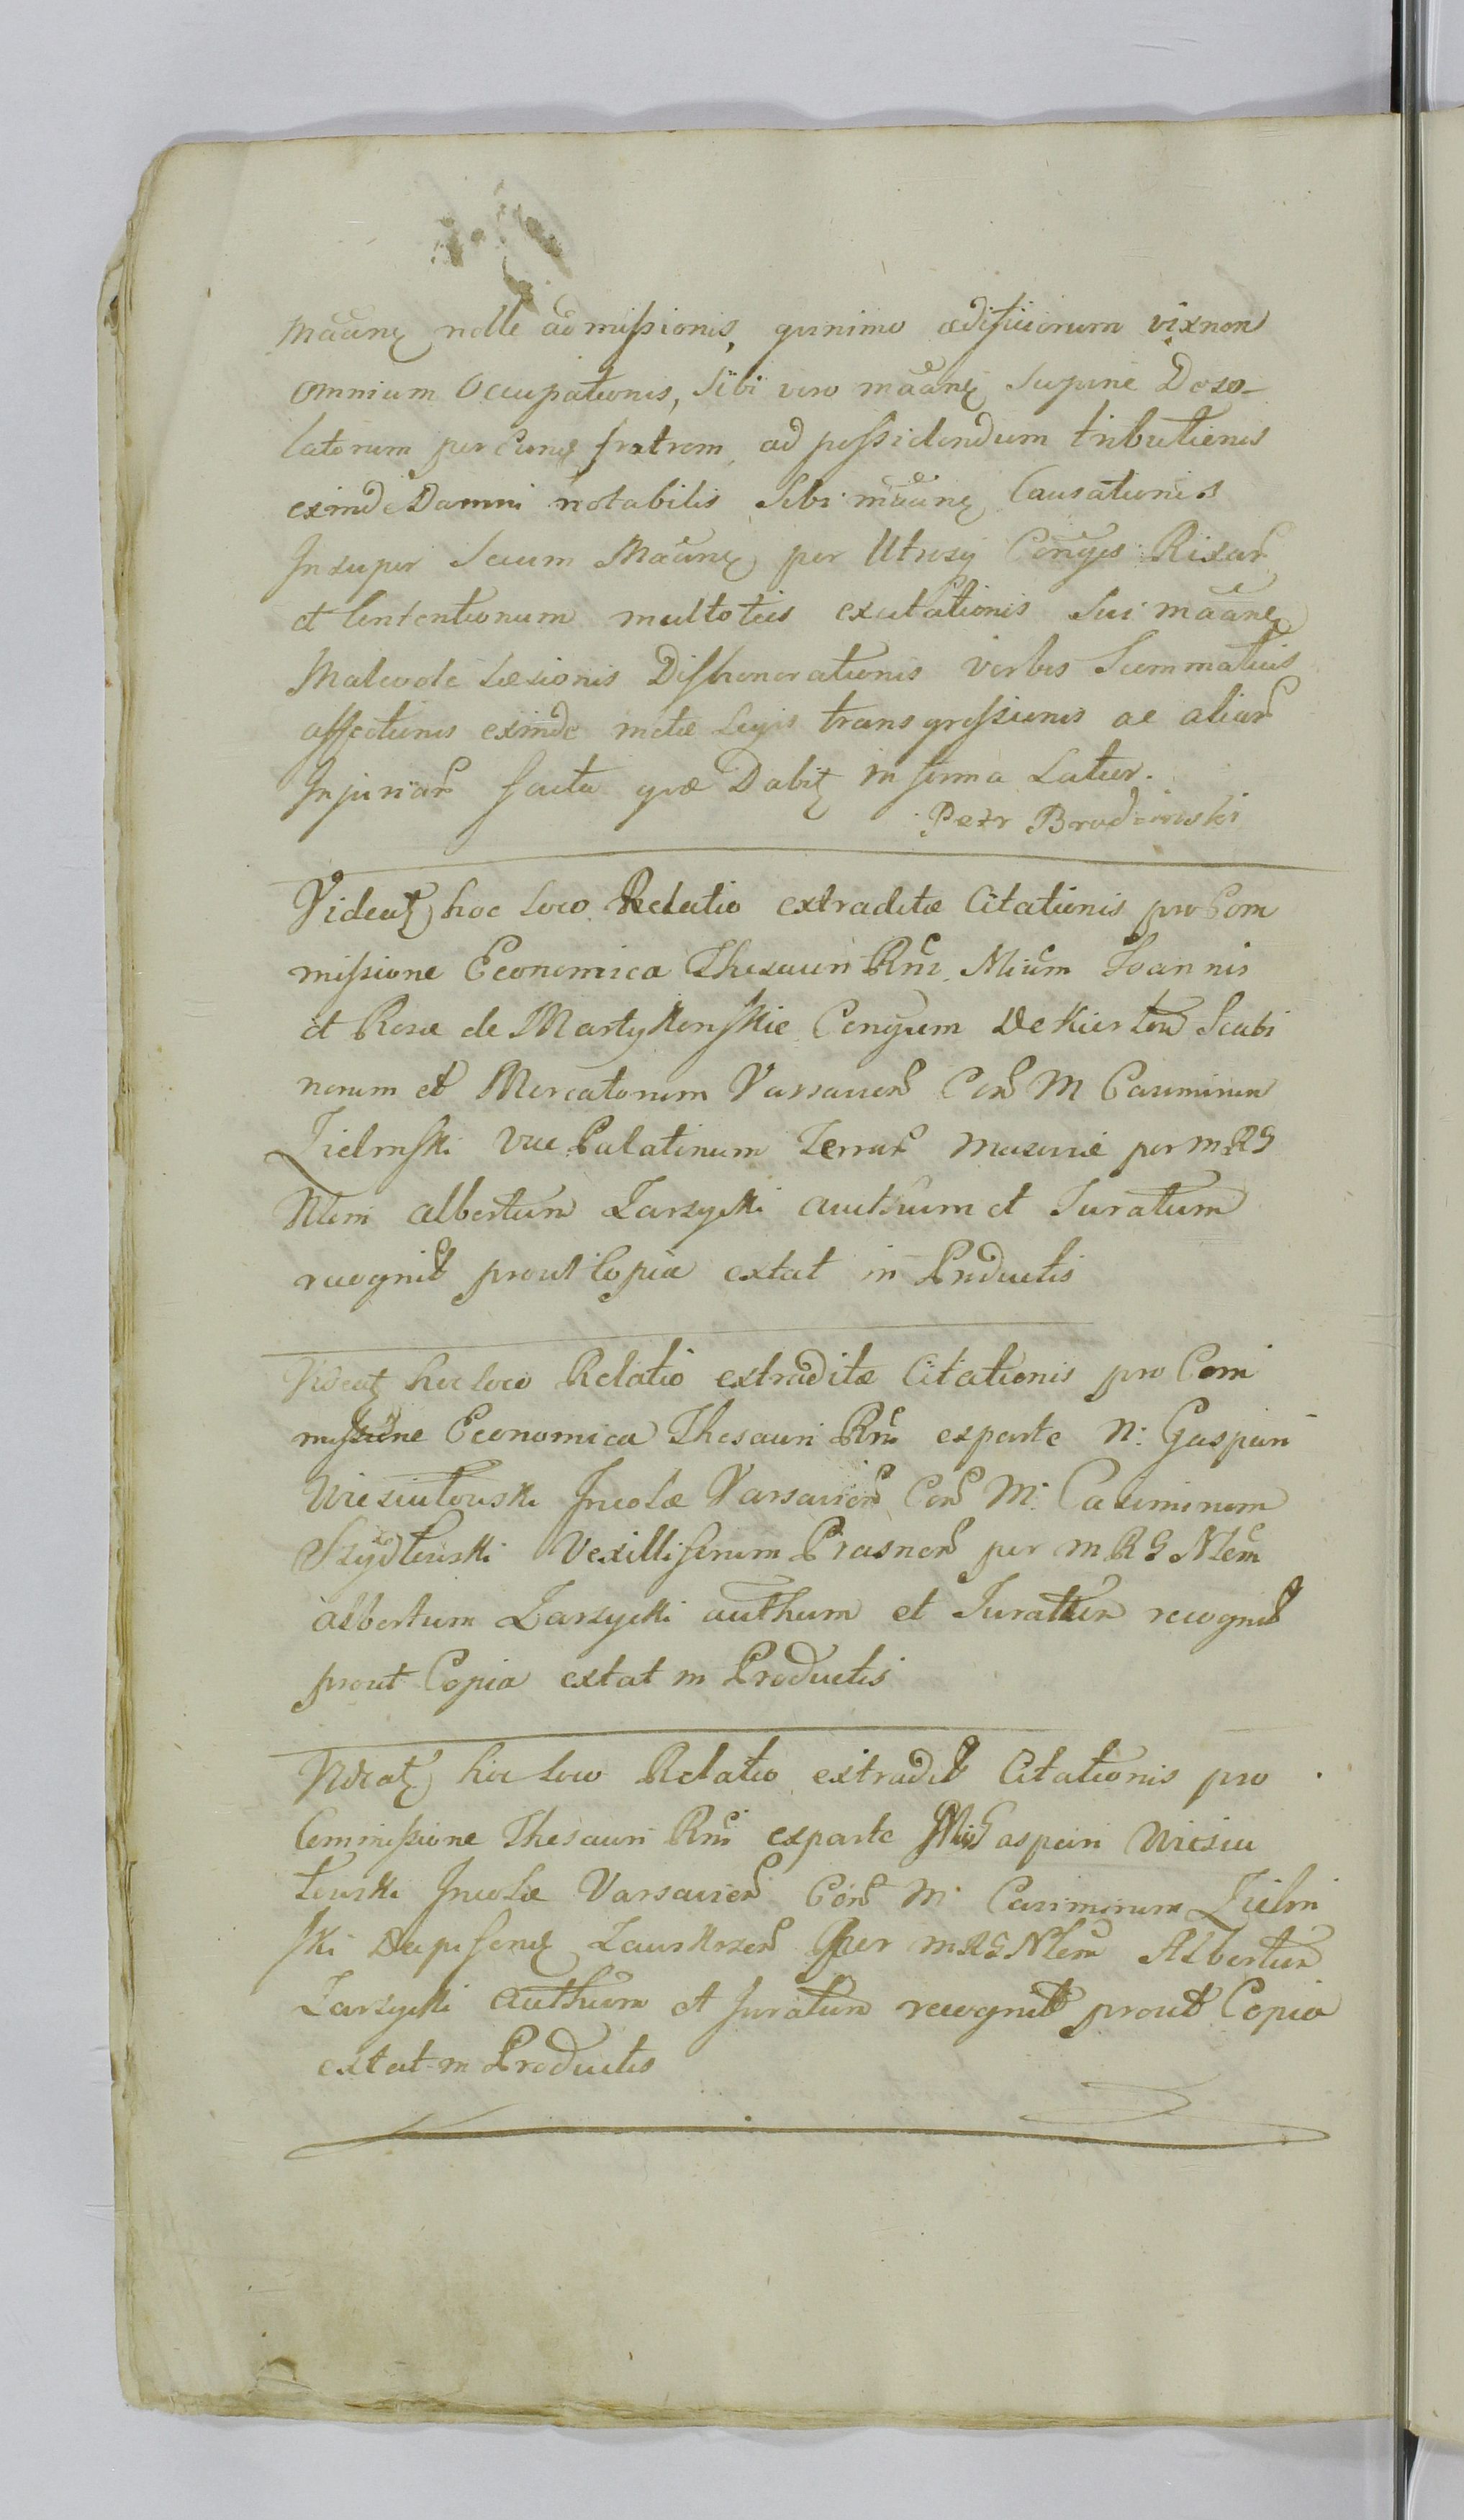 maãnę nolle admissionis, quinimo ædificiorum vixnon
omnium Occupationis, Sibi vero maãnę Supine Deso-
latorum per Eũnd fratrem ad possidendum tributionis
exinde Damni notabilis Sibi maãnę Causationis
Insuper Secum Maãnę per Utrosq Conges Rixar
et Contentionum multoties excitationis Sui maãnę
Malevole Læsionis Dishonorationis verbis Summaticis
affectionis exinde metæ Legis transgressionis ac aliar
Injuriar facta quæ Dabitę in firma Latior.
Petr Brodzinski
Videatę hoc Loco Relatio extraditæ Citationis pro Com
missione Economica Thesauri Rni Mium Joannis
et Rosæ de Martykonskie Congum Dekiertow Scabi
norum et Mercatorum Varsavien Con M Casimirum
Zielinski Vice Palatinum Terrar Masovie per MRG
Nlem albertum Zarzycki authum et Juratum
recognit prout Copia extat in Productis
Videatę hoc loco Relatio extraditæ Citationis pro Com
missione Economica Thesauri Rni exparte N: Gaspari
Wiesiulowski Incolæ Varsavien Con M: Casimirum
Szydlowski Vexilliferum Prasnen per MRG Nlem
albertum Zarzycki authum et Juratum recognit
prout Copia extat in Productis
Videatę hoc loco Relatio extradit Citationis pro
Commissione Thesauri Rni exparte Gaspari Wiesiu
lowski Incolæ Varsavien Con M: Casimirum Zielin
ski Dapiferę Zawskrzen per MRG Nlem Albertum
Zarzycki authum et Juratum recognit prout Copia
extat in Productis